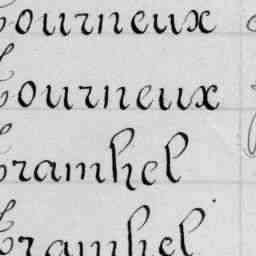 Tourneux
Tourneux
Tramhel
Tramhel